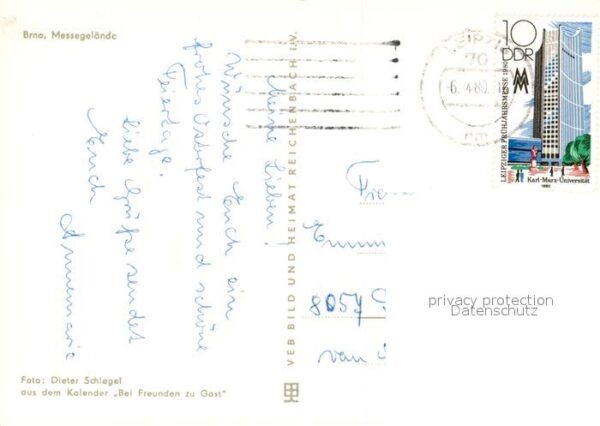 Brno, Messegelände
Meine Lieben!
Wünsche Euch ein
frohes Osterfest und schöne
Feiertage.
Liebe Grüße sendet
Euch Annemarie
Foto: Dieter Schlegel
aus dem Kalender „Bei Freunden zu Gast"
VEB BILD UND HEIMAT REICHENBACH i. V.
70
6. 4. 80
10
DDR
MM
LEIPZIGER FRÜHJAHRSMESSE 1980
Karl-Marx-Universität
1980
8057
van
privacy protection
Datenschutz